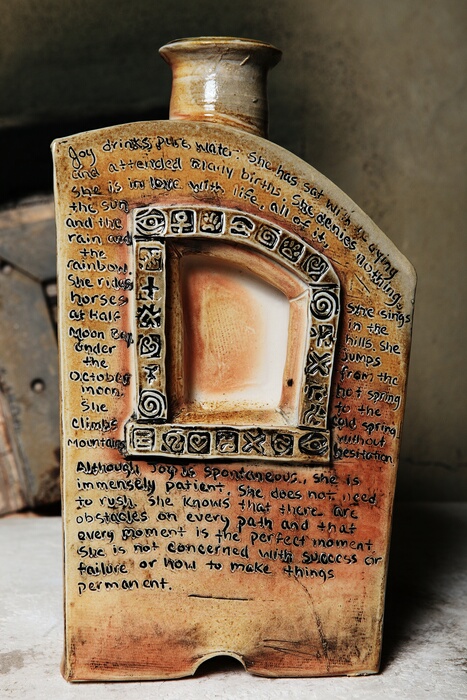 Joy drinks pure water. She has sat with a dying
and attended many births. She denies nothing.
She is in love with life, all of it,
the sun
and the
rain and
the
rainbow.
She rides
horses
at Half
Moon Bay
under
the
October
moon.
She
climbs
mountains.
She sings
in the
hills. She
jumps
from the
hot spring
to the
cold spring
without
hesitation.
Although Joy is spontaneous, she is
immensely patient. She does not need
to rush. She knows that there are
obstacles on every path and that
every moment is the perfect moment.
She is not concerned with success or
failure or how to make things
permanent.